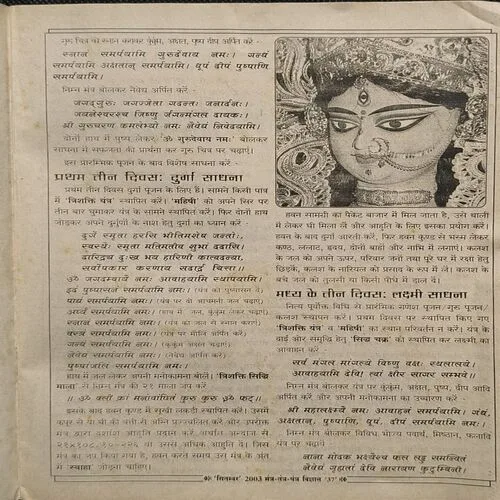 गुरु चित्र को स्नान कराकर कुंकुंम, अक्षत, पुष्प दीप अर्पित करें -
स्नानं समर्पयामि गुरुदेवाय नमः। गन्धं
समर्पयामि अक्षतान् समर्पयामि। धूपं दीपं पुष्पाणि
समर्पयामि।
निम्न मंत्र बोलकर नैवेद्य अर्पित करें -
जगद्गुरुः जगज्जेता जनार्दनः।
जयनेश्वरस्च जिष्णु दायकः।
श्री गुरुचरण कमलेभ्यो नमः नैवेद्यं निवेदयामि।
दोनों हाथ में पुष्प लेकर 'ॐ गुरुवेवाय नमः' बोलकर
साधना में सफलता की प्रार्थना कर गुरु चित्र पर चढ़ाएं।
इस प्रारम्भिक पूजन के बाद विशेष साधना करें -
प्रथम तीन दिवसः दुर्गा साधना
प्रथम तीन दिवस दुर्गा पूजन के लिए है। सामने किसी पात्र
में 'त्रिशक्ति यंत्र' स्थापित करें। 'महिषी' को अपने सिर पर
तीन बार घुमाकर यंत्र के सामने स्थापित करें। फिर दोनों हाथ
जोड़कर अपने दुर्गुणों के नाश हेतु दुर्गा का ध्यान करें -
दुर्गे स्मृता हरसि भीतिमशेष जन्तोः,
स्वस्थैः स्मृता मतिमतीव शुभां ददासि।
दारिद्र्य दुःख भय हारिणी
सर्वोपकार करणाय
ॐ जगदम्बायै नमः आवाहयामि स्थापयामि।
इदं पुष्पासनं समर्पयामि नमः। (यंत्र को पुष्पासन दें)
पाद्यं समर्पयामि नमः। (यंत्र पर दो आचमनी जल चढ़ाएं)
अर्घ्यं समर्पयामि नमः। (हाथ में जल, कुंकुंम लेकर चढ़ाएं)
स्नानं समर्पयामि नमः। (यंत्र को जल से स्नान कराएं)
वस्त्रं समर्पयामि नमः। (यंत्र पर मौलि अर्पित करें)
गन्धं समर्पयामि नमः। (कुंकुंम अक्षत चढ़ाएं)
नैवेद्यं समर्पयामि नमः। (नैवेद्य अर्पित करें)
पुष्पांजलिं समर्पयामि नमः।
हाथ में जल लेकर अपनी मनोकामना बोलें। 'त्रिशक्ति सिद्धि
माला' से निम्न मंत्र की २१ माला जप करें
इसके बाद हवन कुण्ड में सूखी लकड़ी स्थापित करें। उसमें
कपूर से या घी की बत्ती से अग्नि प्रज्वलित करें और उपरोक्त
मंत्र द्वारा दशांश आहुति प्रदान करें। अर्थात् अन्दाज से
या उससे अधिक आहुति दें। जिस
मंत्र का जप किया गया है, हवन करते समय उस मंत्र के अंत
में स्वाहा जोड़ना चाहिए।
हवन सामग्री का पैकेट बाजार में मिल जाता है, उसे थाली
में लेकर घी मिला लें और आहुति के लिए इसका प्रयोग करें।
हवन के बाद दुर्गा आरती करें, फिर हवन कुण्ड से भस्म लेकर
कण्ठ, ललाट, हृदय, दोनों बाहों और नाभि में लगाएं। कलश
के जल को अपने ऊपर, परिवार जनों तथा पूरे घर में रक्षा हेतु
छिड़कें, कलश के नारियल को प्रसाद के रूप में लें। कलश के
बचे जल को तुलसी या किसी पौधे में डाल दें।
मध्य के तीन दिवसः लक्ष्मी साधना
नित्य पूर्वोक्त विधि से प्रारंभिक गणेश पूजन/ गुरु पूजन/
कलश स्थापन करें। प्रथम दिवस पर स्थापित किए गए
'त्रिशक्ति यंत्र' व 'महिषी' का स्थान परिवर्तन न करें। यंत्र के
दाई ओर समृद्धि हेतु 'सिद्ध चक्र' को स्थापित कर लक्ष्मी का
आवाहन करें
सर्व मंगल मांगल्यं विष्णु वक्षः स्थलालये।
आवाहयामि देवि! त्वां क्षीर सागर सम्भवे।।
निम्न मंत्र बोलकर यंत्र पर कुंकुंम, अक्षत, पुष्प, दीप आदि
अर्पित करें और अपनी मनोकामना का उच्चारण करें -
श्री महालक्ष्म्यै नमः आवाहनं समर्पयामि। गंधं,
अक्षतान्, पुष्पाणि, धूपं, दीपं समर्पयामि।
निम्न मंत्र बोलकर विविध भोज्य पदार्थ, मिष्ठान्न, फलादि
यंत्र पर चढ़ाएं
नाना मोदक भक्ष्यैश्च फल लड्डू समन्वितं
नैवेद्यं गृह्यतां देवि नारायण कुटुम्बिनी।
'सितम्बर' 2003 मंत्र-तंत्र-यंत्र विज्ञान '37'